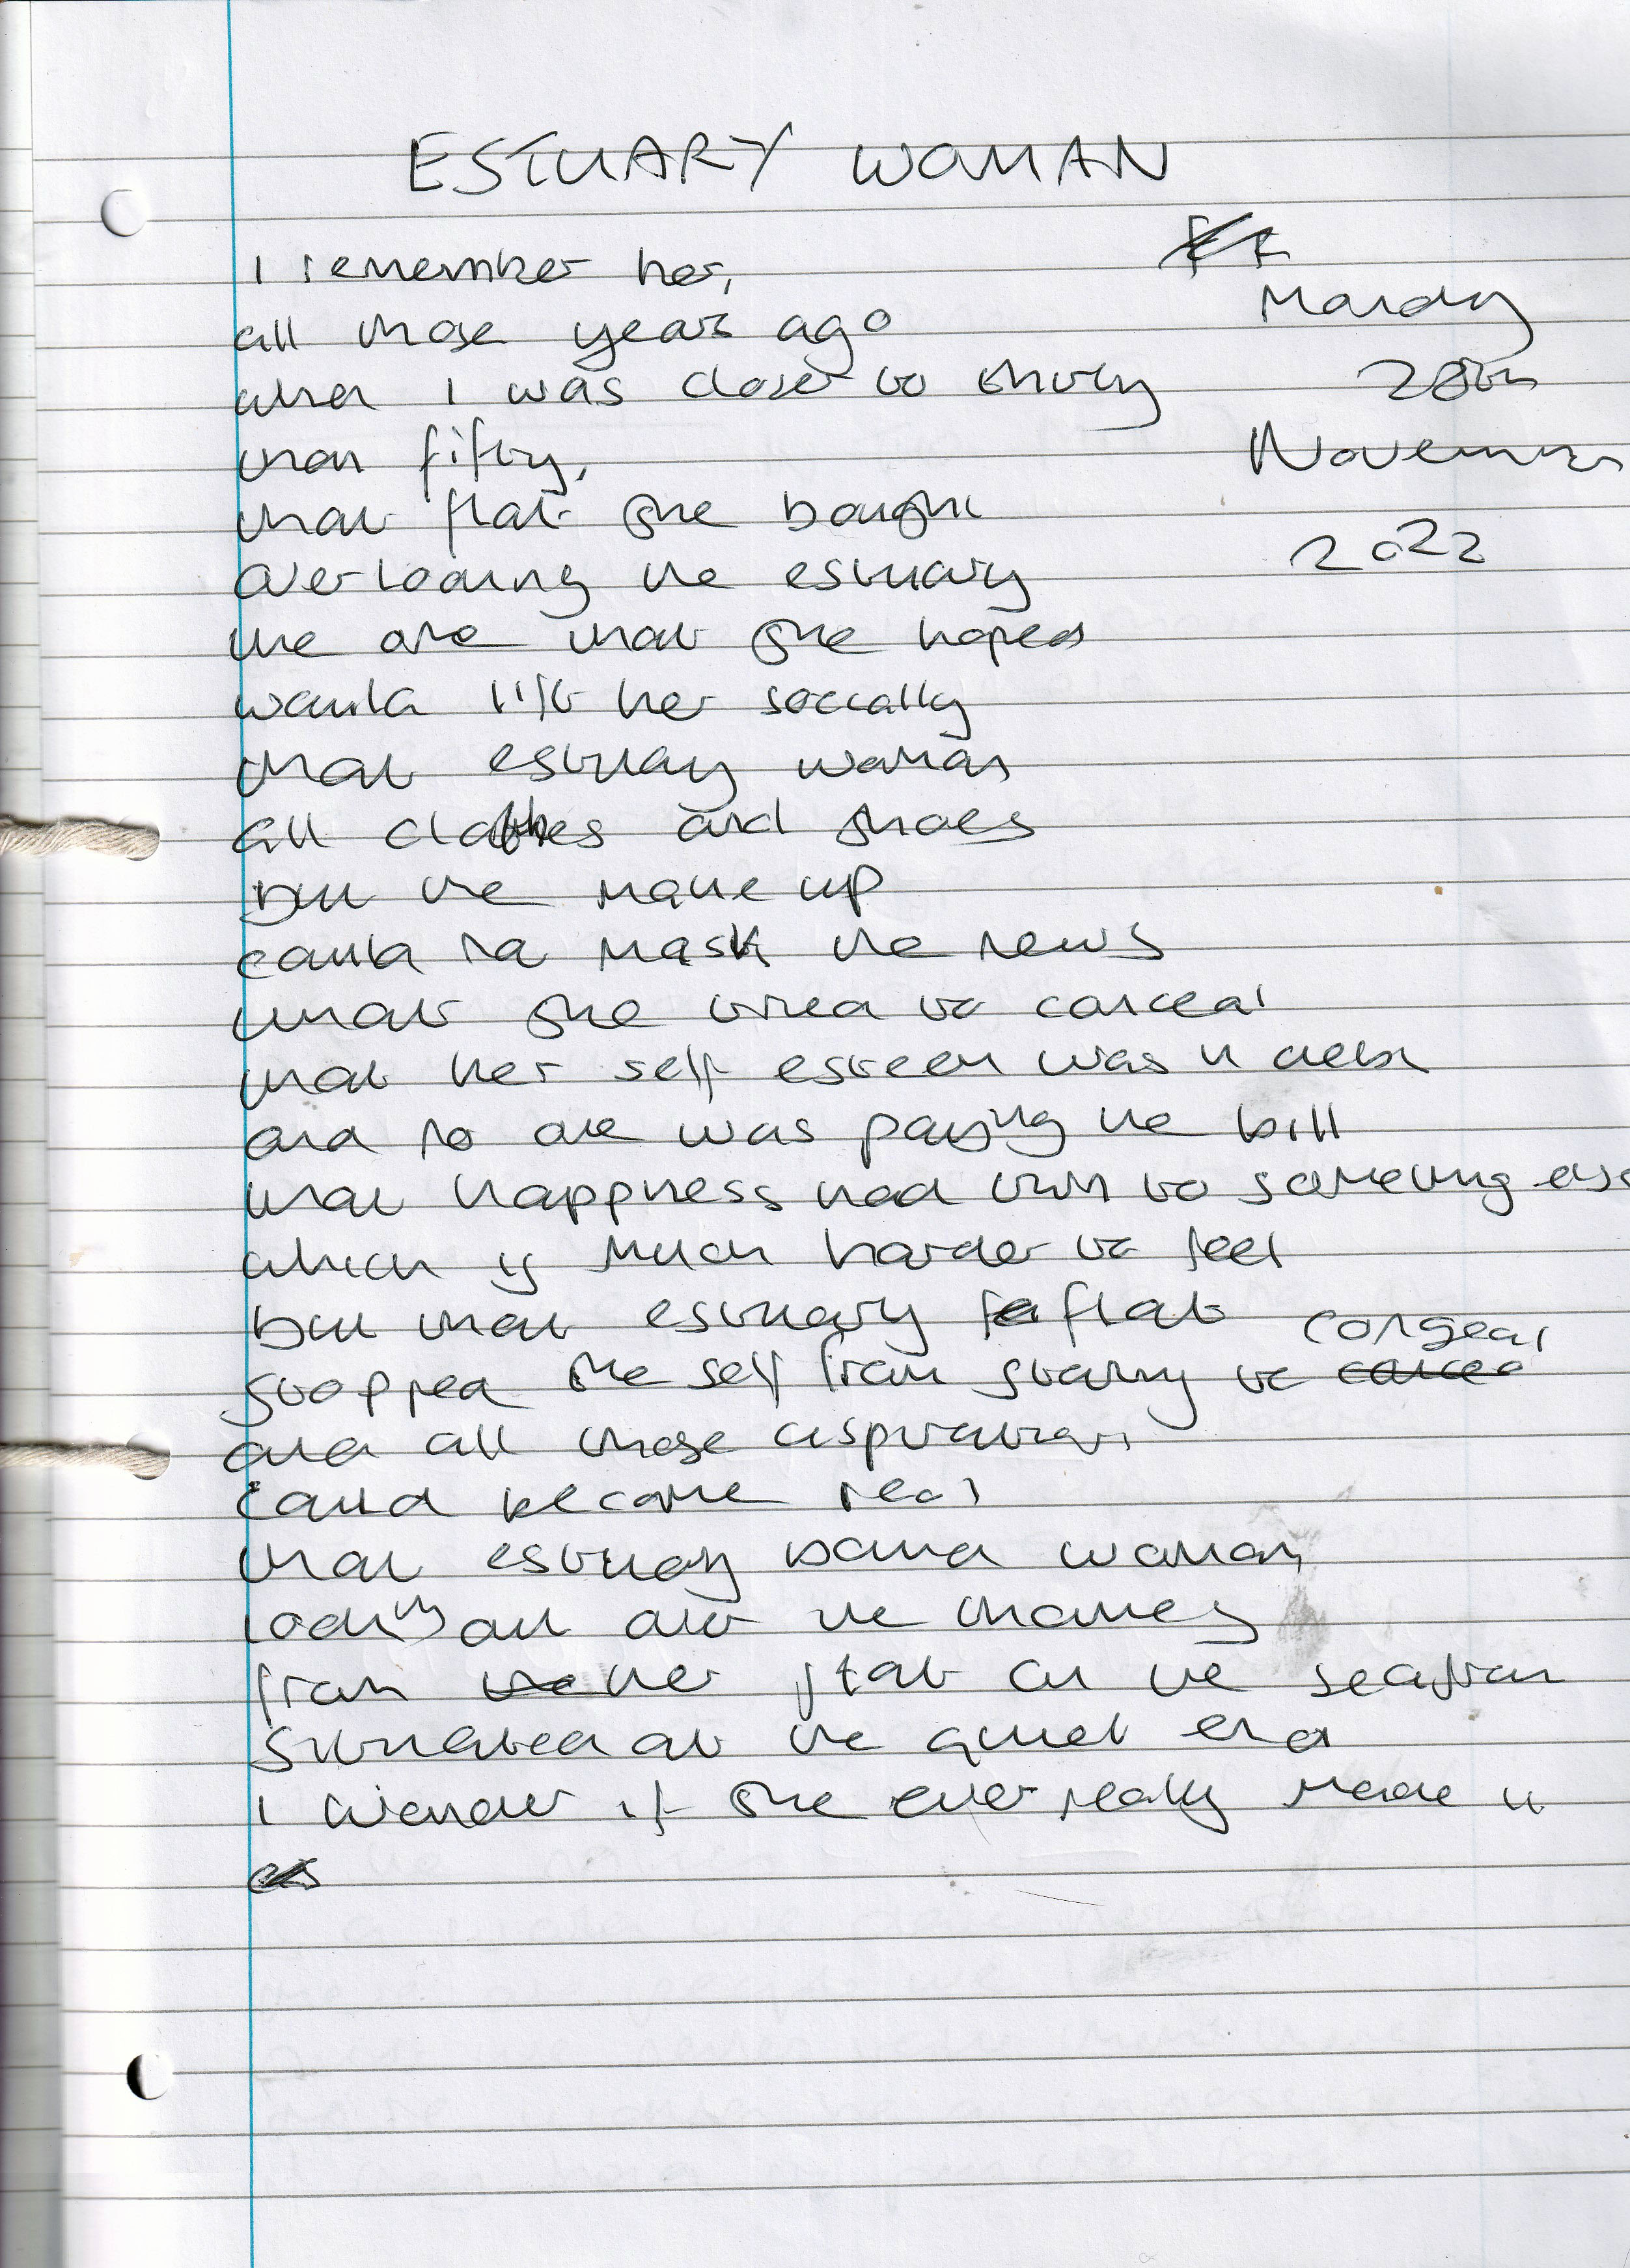 ESTUARY WOMAN
I remember her,
all those years ago
when I was closer to thirty
than fifty,
that flat she bought
overlooking the estuary
the one that she hoped
would lift her socially
that estuary woman
all clothes and shoes
but the make up
could not mask the news
that she tried to conceal
that her self esteem was in debt
and no one was paying the bill
that happiness had turn to something else
which is much harder to feel
but that estuary flat
stopped the self from starting to congeal
and all those aspirations
could become real
that estuary bound woman
looking out over the Thames
from her flat on the seafront
situated at the quiet end
I wonder if she ever really made it
Monday
28th
November
2022